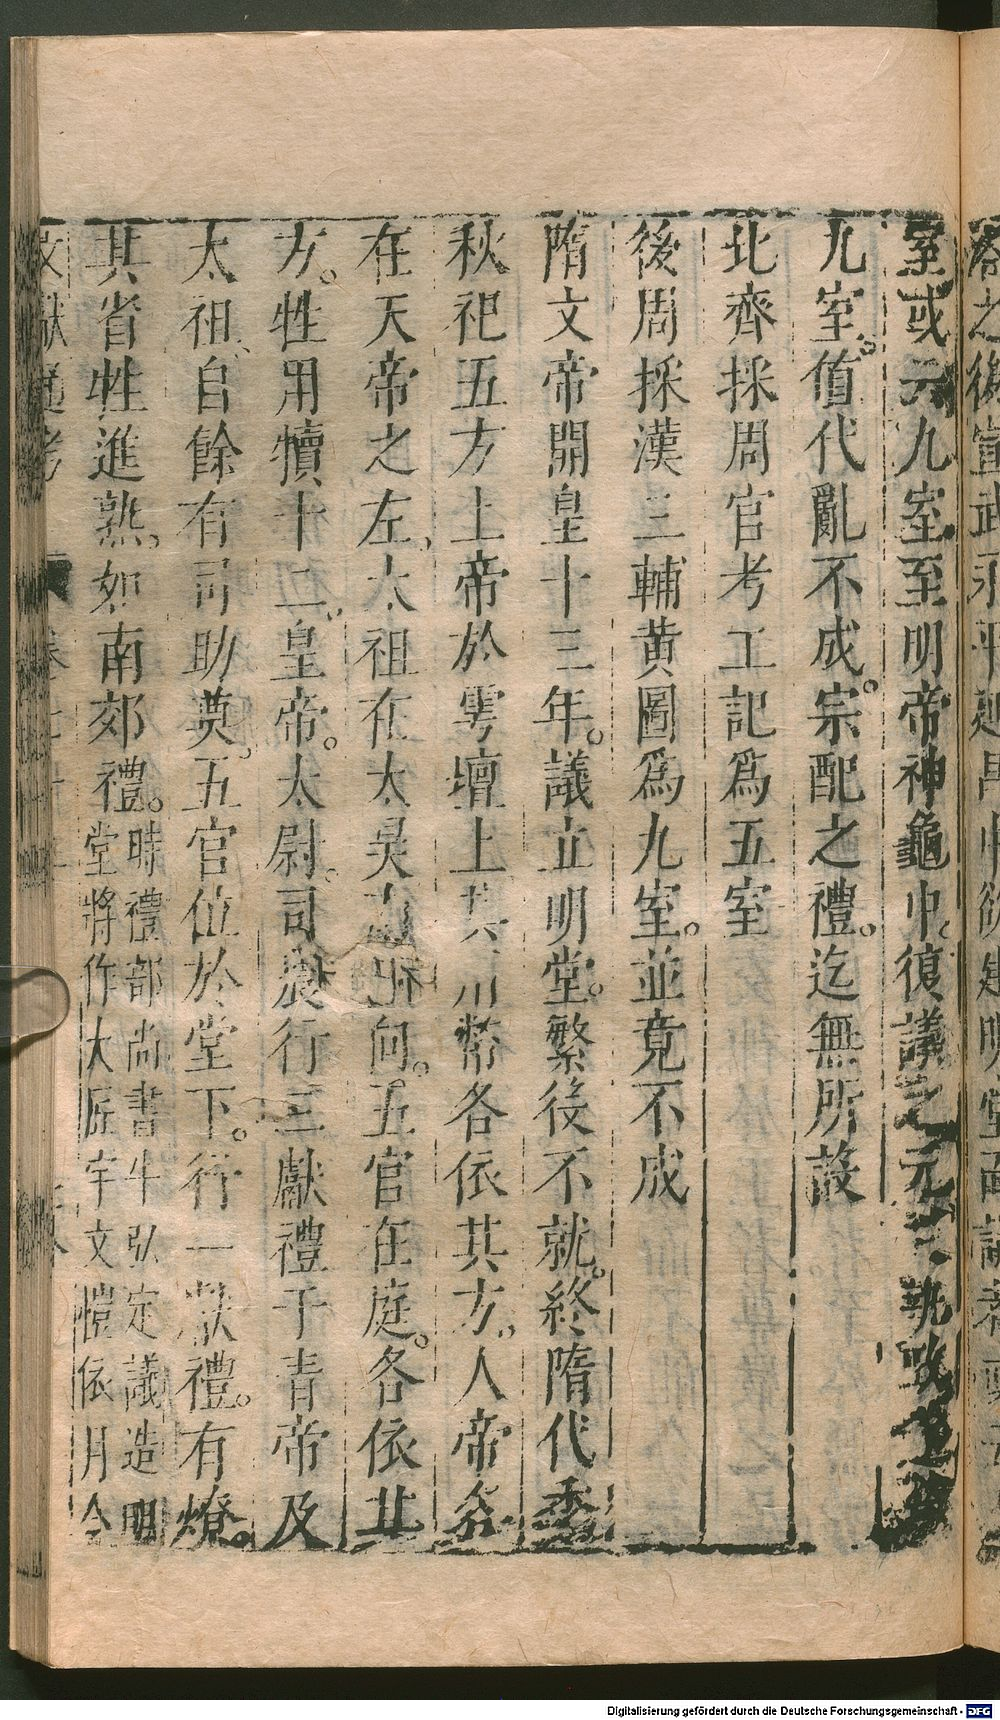 室或云九室至明帝神龜中復議之元乂執政
九室。值代亂不成。宗配之禮。迄無所設
北齊採周官考工記爲五室
後周採漢三輔黄圖爲九室。並竟不成
隋文帝開皇十三年。議立明堂。繁役不就。終隋代季
秋祀五方上帝於雩壇上其用幣各依其方。人帝各
在天帝之左。太祖在太昊南西向。五官在庭。各依其
方。牲用犢十二。皇帝。太尉。司農行三獻禮于青帝及
太祖、自餘有司助奠。五官位於堂下。行一獻禮。有燎。
其省牲進熟。如南郊禮。
時禮部尚書牛弘定議造明
堂將作大匠宇文愷依月令
文獻通考
卷七十三
Digitalisierung gefördert durch die Deutsche Forschungsgemeinschaft - DFG